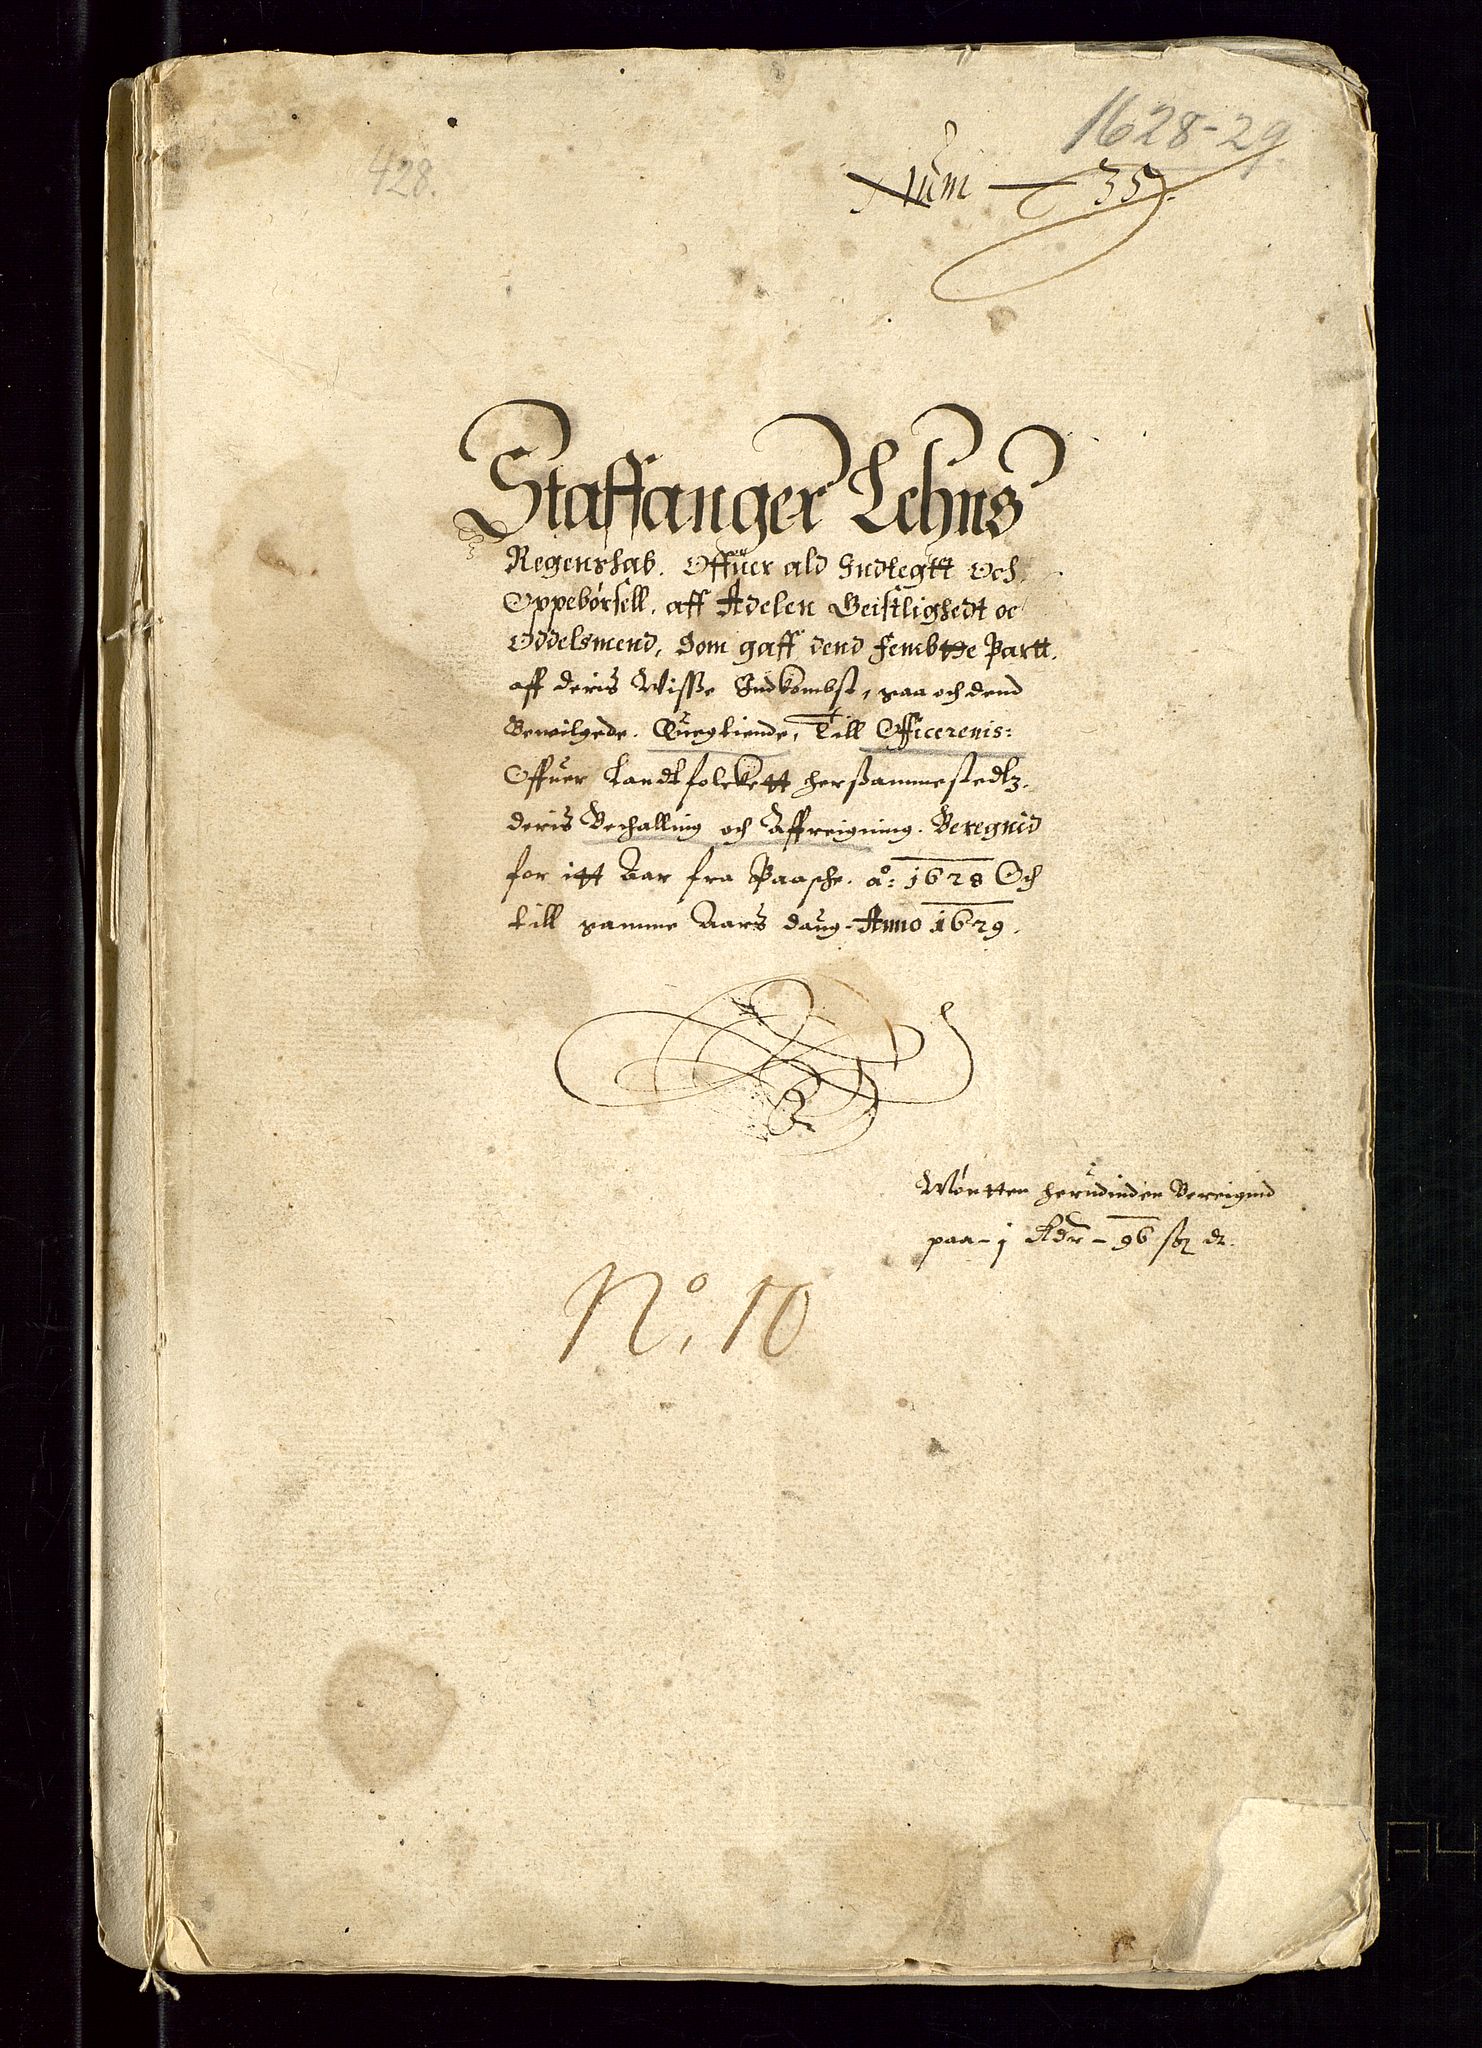 1628-29.
428.
Num — 35.
Staffanger Lehns
Regenskab. Offuer ald Indlegtt Och
Oppebørsell. aff Adelen Geistlighedt oc
Oddelsmend, Som gaff dend Fembtte Partt.
aff deris Wisse Indkombst, saa och dend
Bewilgede. Quegtiende, Till Officerenis:
Offuer Landtfolckett hersammestedtz.
deris Bethalling och Affreigning. Beregnid
for itt Aar fra Paasche. Aº: 1628 Och
till samme Aars daug. Anno 1629.
Møntten herudinden Bereignid
paa - j Rdr - 96 sk dr.
Nº. 10